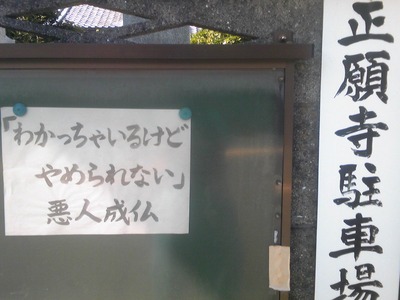 「わかっちゃいるけど
やめられない」
悪人成仏
正願寺駐車場